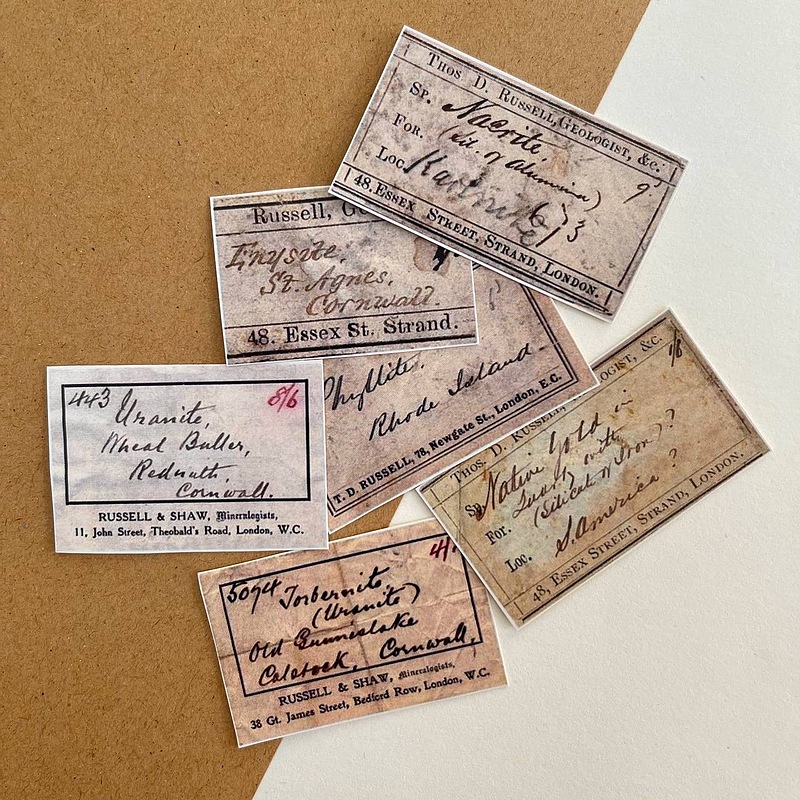 Thos D. Russell, Geologist, &c.
Sp. Nacrite.
9
For. (sil. of alumina)
Loc.
48, Essex Street, Strand, London.
Russell, G
Enysite.
St. Agnes.
Cornwall.
48. Essex St. Strand.
Phyllite.
Rhode Island
T. D. RUSSELL, 78, Newgate St., London, E.C.
443 Uranite, 8/6
Wheal Buller,
Redruth,
Cornwall.
RUSSELL & SHAW, Mineralogists,
11, John Street, Theobald's Road, London, W.C.
Thos. D. Russell, Geologist, &c.
1/8
Sp. Native Gold in
Quartz with
For. (Silicate of Iron)?
Loc. S. America?
48, Essex Street, Strand, London.
5074 Torbernite 4/.
(Uranite)
Old Gunnislake
Calstock, Cornwall.
RUSSELL & SHAW, Mineralogists,
38 Gt. James Street, Bedford Row, London, W.C.